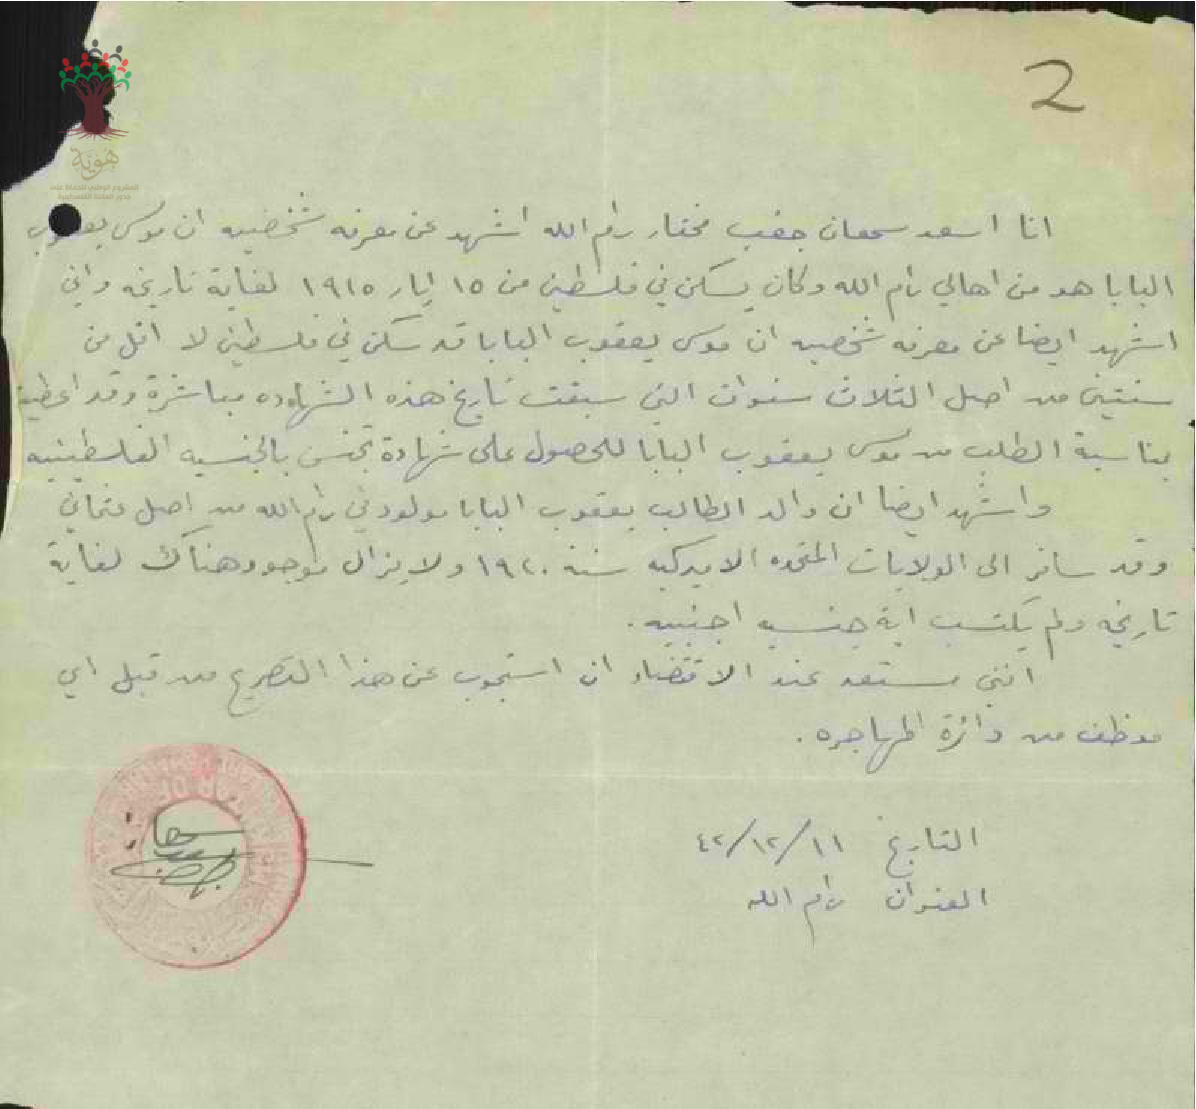 2
هوية
المشروع الوطني للحفاظ على
جذور العائلة الفلسطينية
انا اسعد سمعان جغب مختار رام الله اشهد عن معرفه شخصيه ان موسى يعقوب
البابا هو من اهالي رام الله وكان يسكن في فلسطين من ١٥ ايار ١٩١٥ لغاية تاريخه واني
اشهد ايضا عن معرفه شخصيه ان موسى يعقوب البابا قد سكن في فلسطين لا اقل من
سنتين من اصل الثلاث سنوات التي سبقت تاريخ هذه الشهاده مباشرة وقد اعطيت
بمناسبة الطلب من موسى يعقوب البابا للحصول على شهادة تجنس بالجنسيه الفلسطينيه
واشهد ايضا ان والد الطالب يعقوب البابا مولود في رام الله من اصل عثماني
وقد سافر الى الولايات المتحده الاميركيه سنة ١٩٢٠ ولا يزال موجود هناك لغاية
تاريخه ولم يكتسب اية جنسيه اجنبيه.
انني مستعد عند الاقتضاء ان استجوب عن هذا التصريح من قبل اي
موظف من دائرة المهاجره.
التاريخ ١١/١٢/٤٢
العنوان رام الله